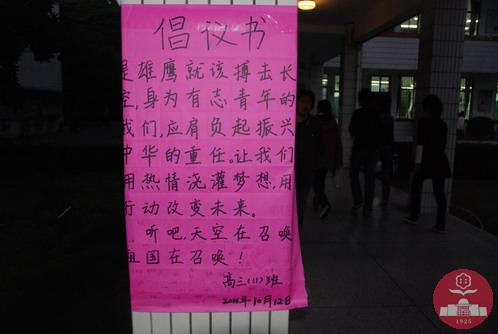 倡议书
是雄鹰就该搏击长
空,身为有志青年的
我们,应肩负起振兴
中华的重任。让我们
用热情浇灌梦想,用
行动改变未来。
听吧,天空在召唤
祖国在召唤!
高三(11)班
2011年10月12日
1925